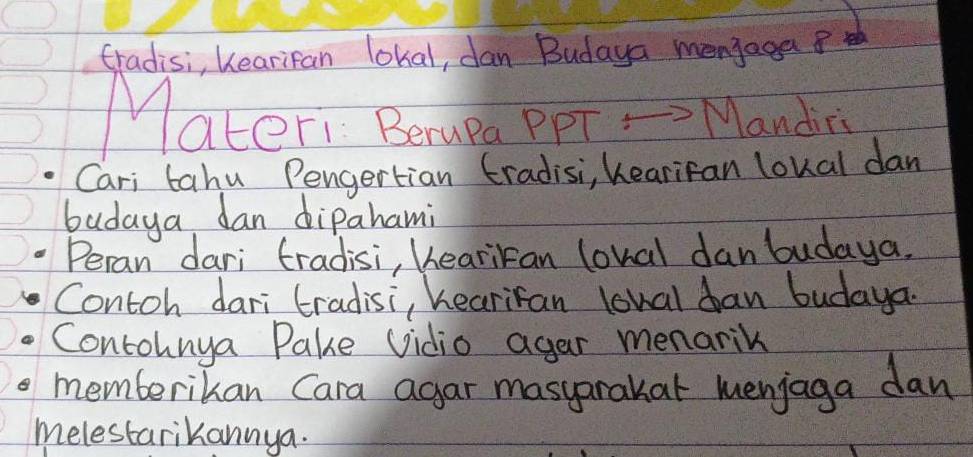 tradisi, kearifan lokal, dan Budaya menjaga?
Materi: Berupa PPT ⟷ Mandiri
• Cari tahu Pengertian tradisi, kearifan lokal dan
budaya dan dipahami
• Peran dari tradisi, kearifan lokal dan budaya.
• Contoh dari tradisi, kearifan lokal dan budaya.
• Contohnya Pake Vidio agar menarik
• memberikan Cara agar masyarakat menjaga dan
melestarikannya.